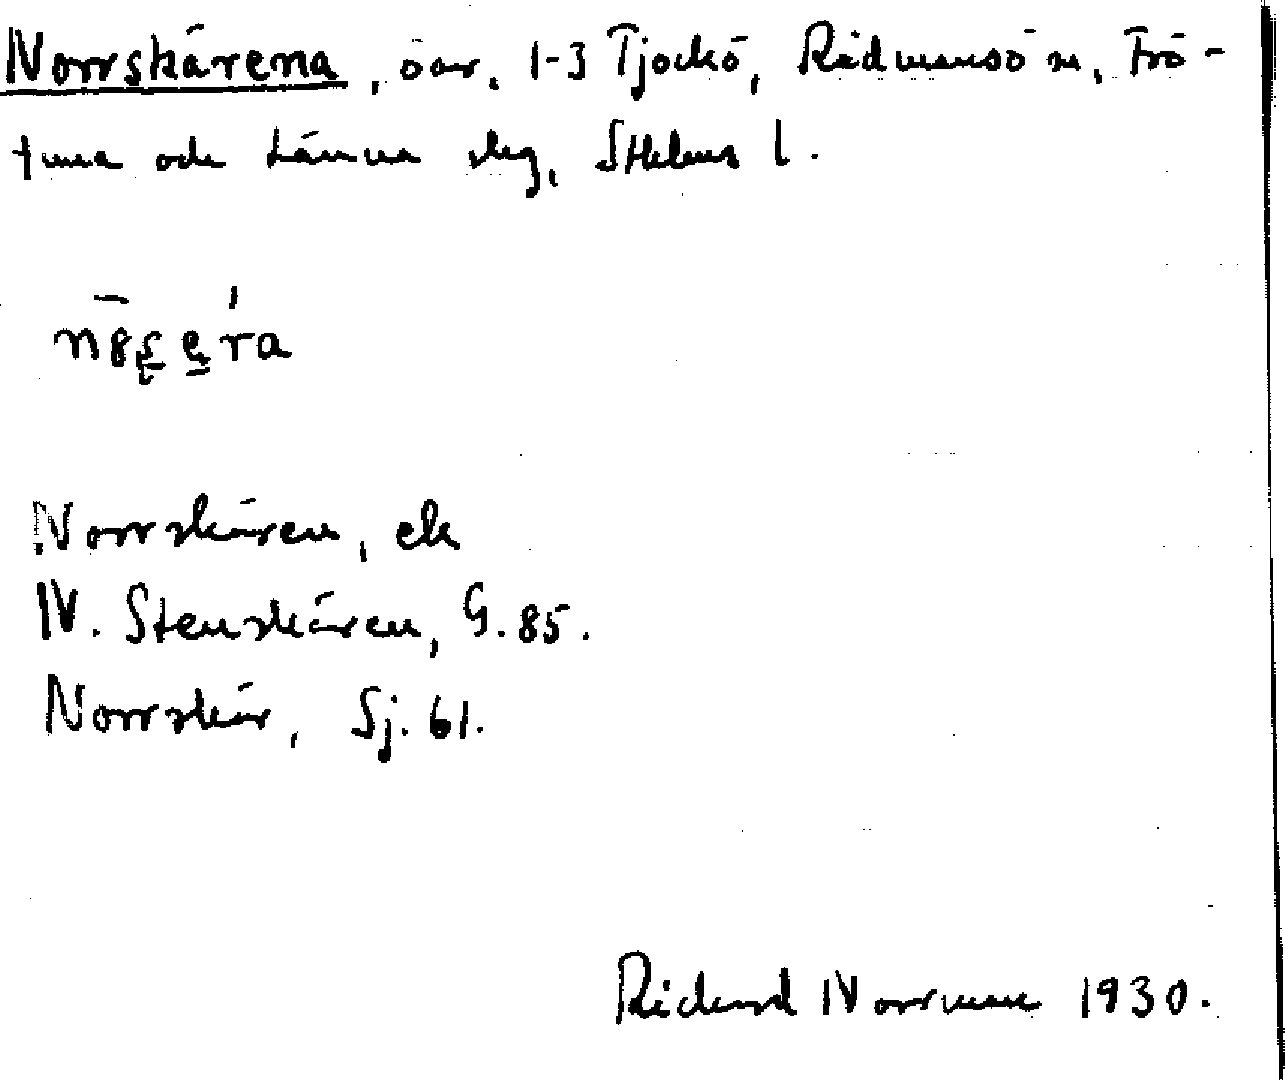 Norrskärena, öar, 1-3 Tjockö, Rådmansö sn, Frö-
tuna och Länna skg, Sthlms l.
Norrskären, ek
N. Stenskären, G. 85.
Norrskär, Sj. 61.
Rickard Norrman 1930.